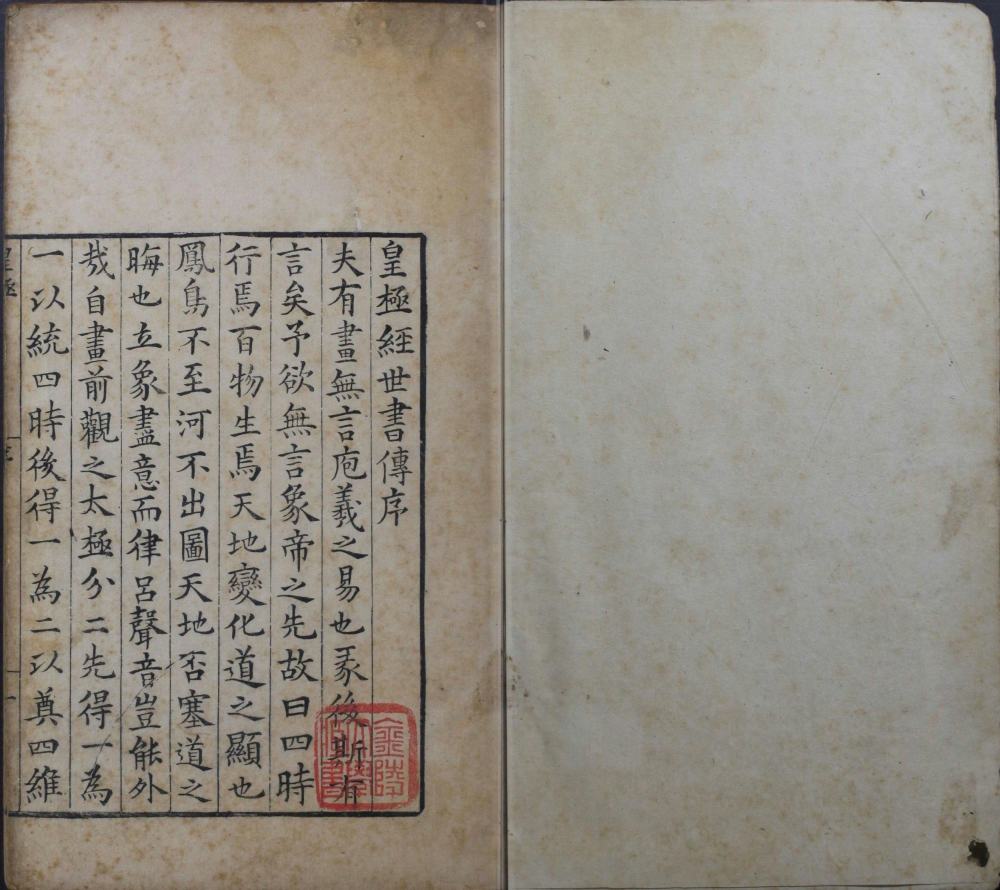 皇極經世書傳序
夫有畫無言庖羲之易也彖後斯有
言矣予欲無言象帝之先故曰四時
行焉百物生焉天地變化道之顯也
鳳鳥不至河不出圖天地否塞道之
晦也立象盡意而律呂聲音豈能外
哉自畫前觀之太極分二先得一為
一以統四時後得一為二以奠四維
皇極
一
金陵大學藏書